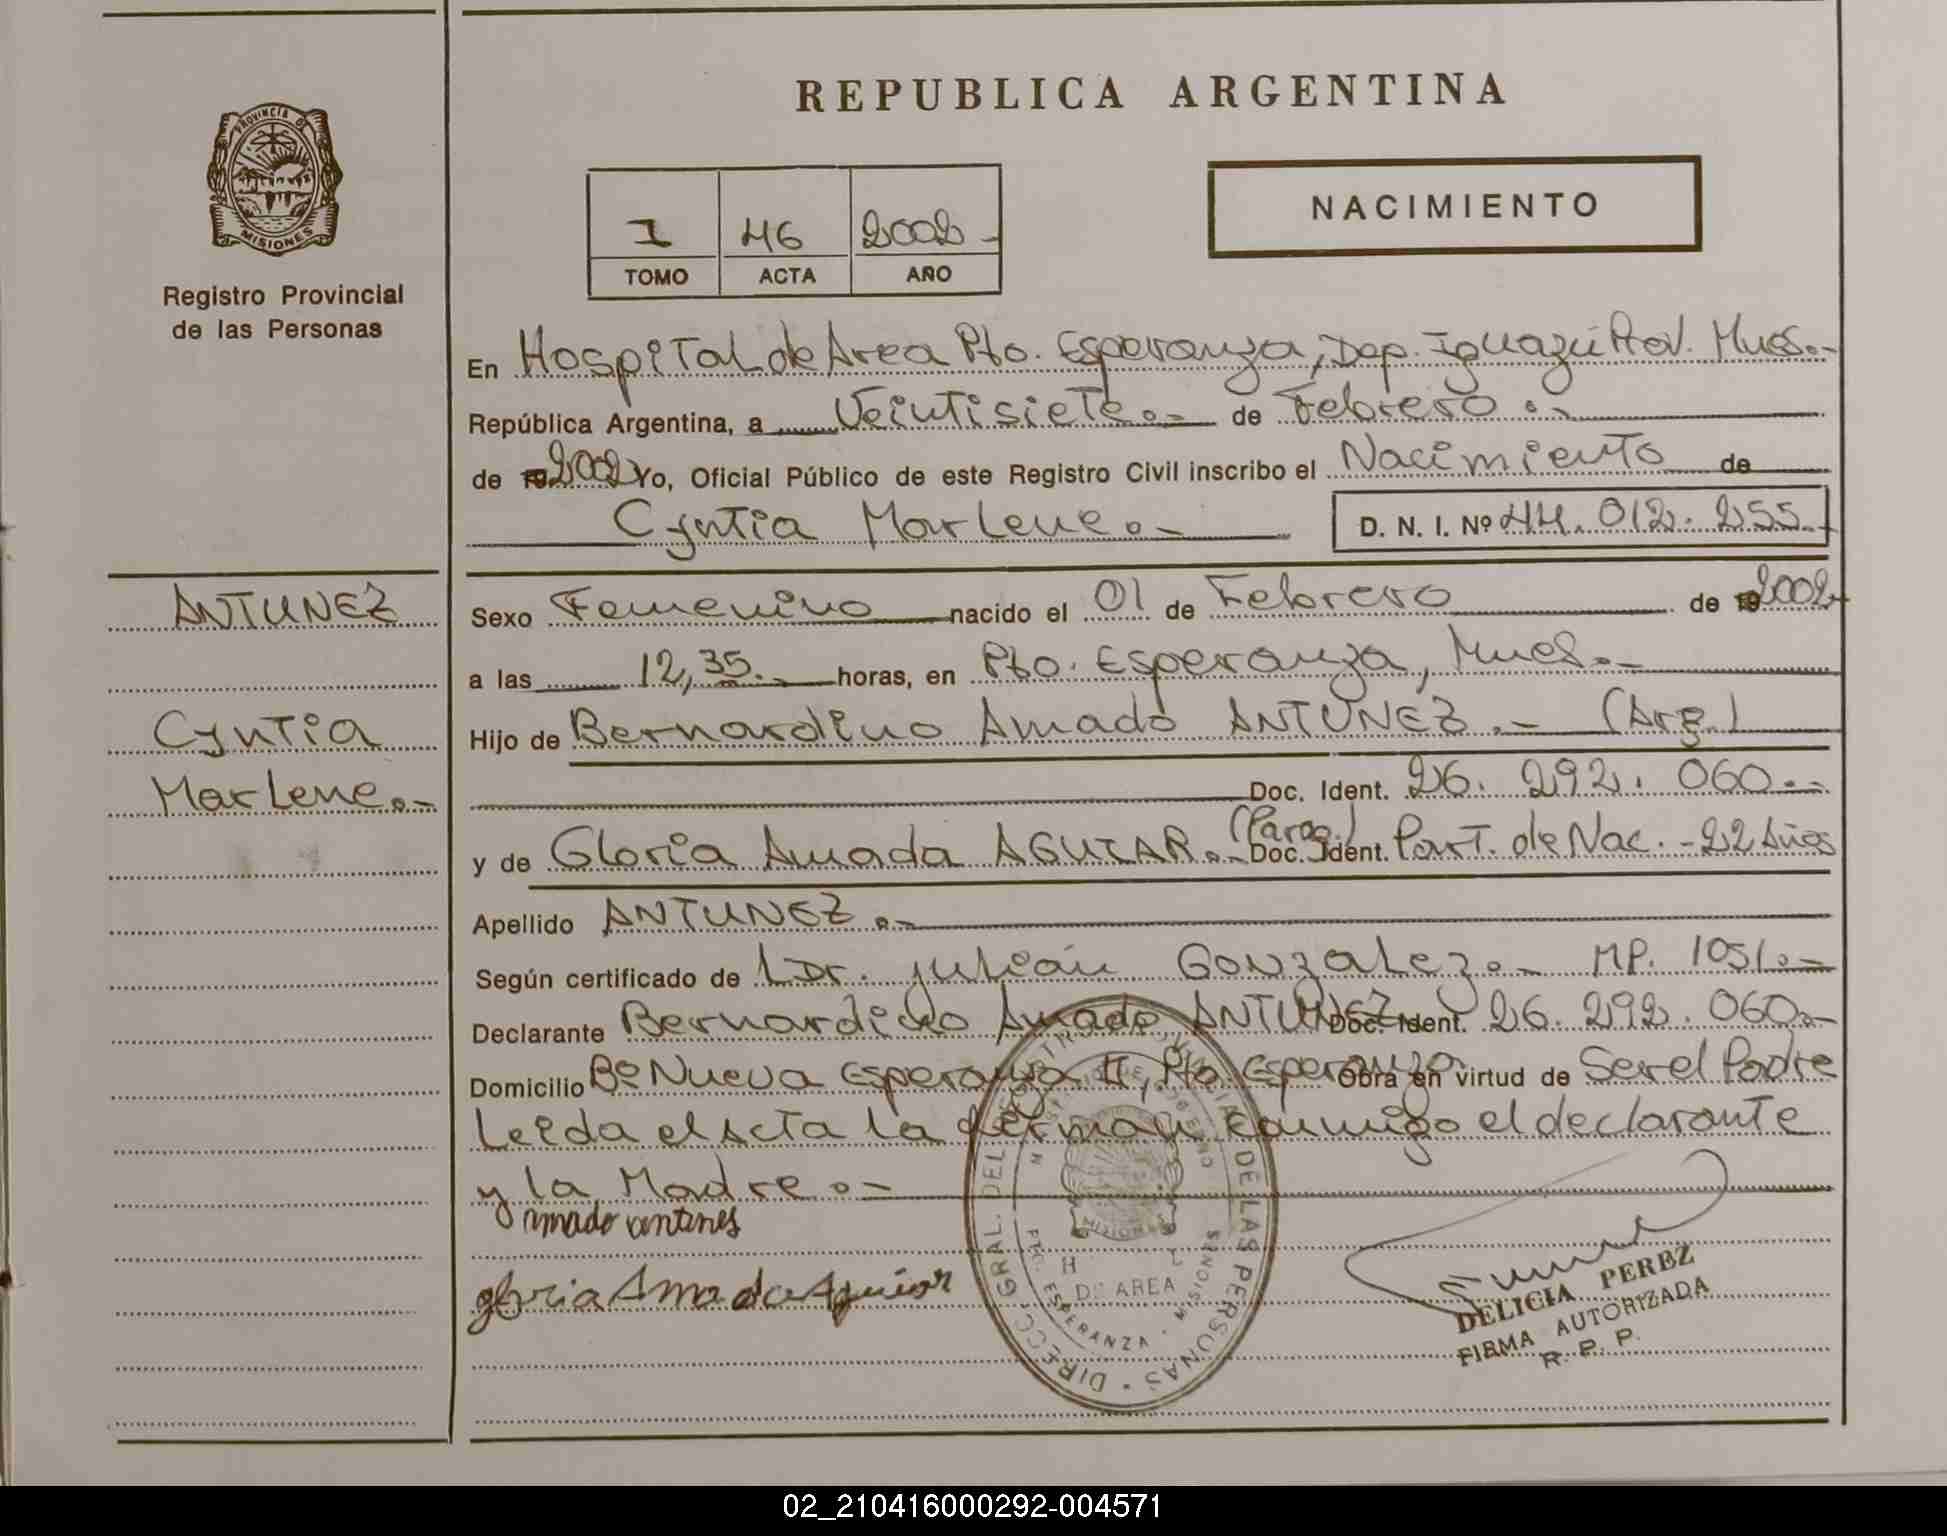 REPUBLICA ARGENTINA
PROVINCIA DE
MISIONES
Registro Provincial
de las Personas
1 46 2002.-
TOMO ACTA AÑO
NACIMIENTO
En Hospital de Area Pto. Esperanza, Dep. Iguazú Prov. Mnes.-
República Argentina, a Veintisiete.- de Febrero.-
de 2002 Yo, Oficial Público de este Registro Civil inscribo el Nacimiento de
Cyntia Marlene.- D. N. I. Nº 44.012.255.-
ANTUNEZ
Cyntia
Marlene.-
Sexo Femenino nacido el 01 de Febrero de 2002
a las 12,35.- horas, en Pto. Esperanza, Mnes.-
Hijo de Bernardino Amado ANTUNEZ.- (Arg.)
Doc. Ident. 26.292.060.-
y de Gloria Amada AGUIAR.- (Parag.) Doc. Ident. Part. de Nac. - 22 Años
Apellido ANTUNEZ.-
Según certificado de Dr. Julián Gonzalez.- MP. 1051.-
Declarante Bernardino Amado ANTUNEZ Doc. Ident. 26.292.060.-
Domicilio Bº Nueva Esperanza II, Pto. Esperanza Obra en virtud de Ser el Padre
Leida el Acta la firman conmigo el declarante
y la Madre.-
amado antunes
gloria Amada Aguiar
DIRECC. GRAL. DEL REGISTRO PROVINCIAL DE LAS PERSONAS
MISIONES
DE AREA
PTO. ESPERANZA - MISIONES
DELICIA PEREZ
FIRMA AUTORIZADA
R. P. P.
02_210416000292-004571